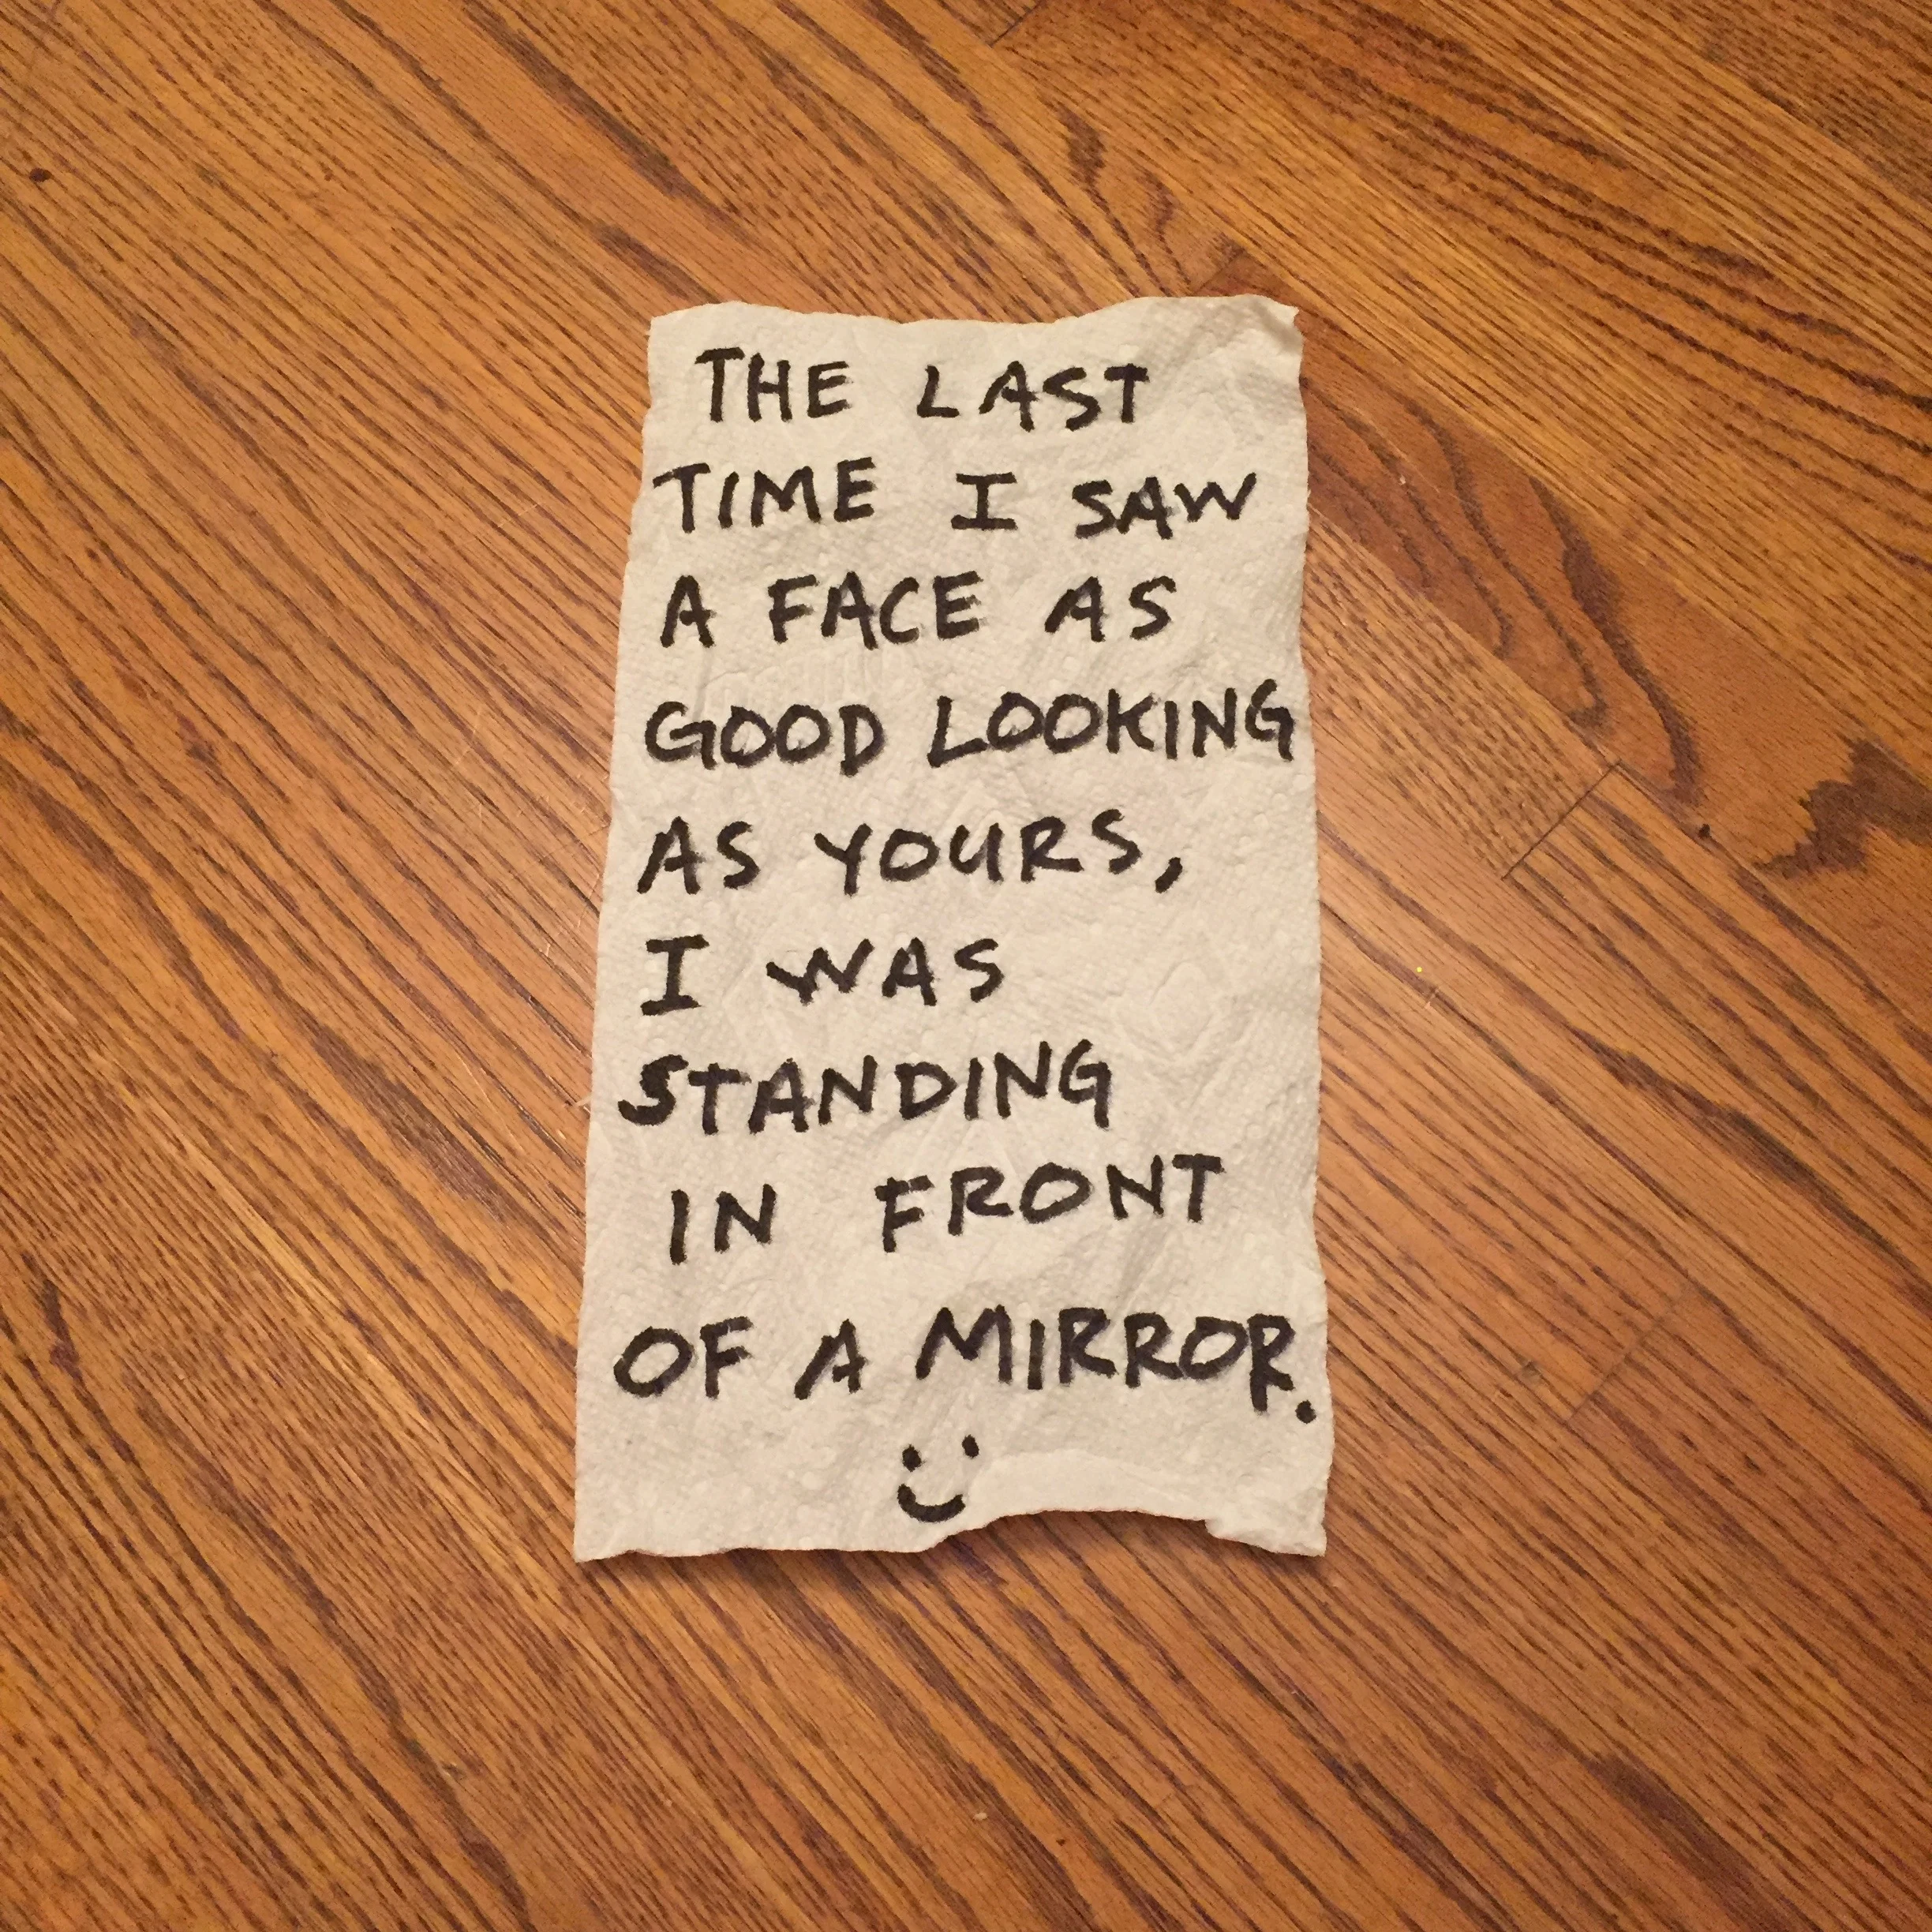 THE LAST
TIME I SAW
A FACE AS
GOOD LOOKING
AS YOURS,
I WAS
STANDING
IN FRONT
OF A MIRROR.